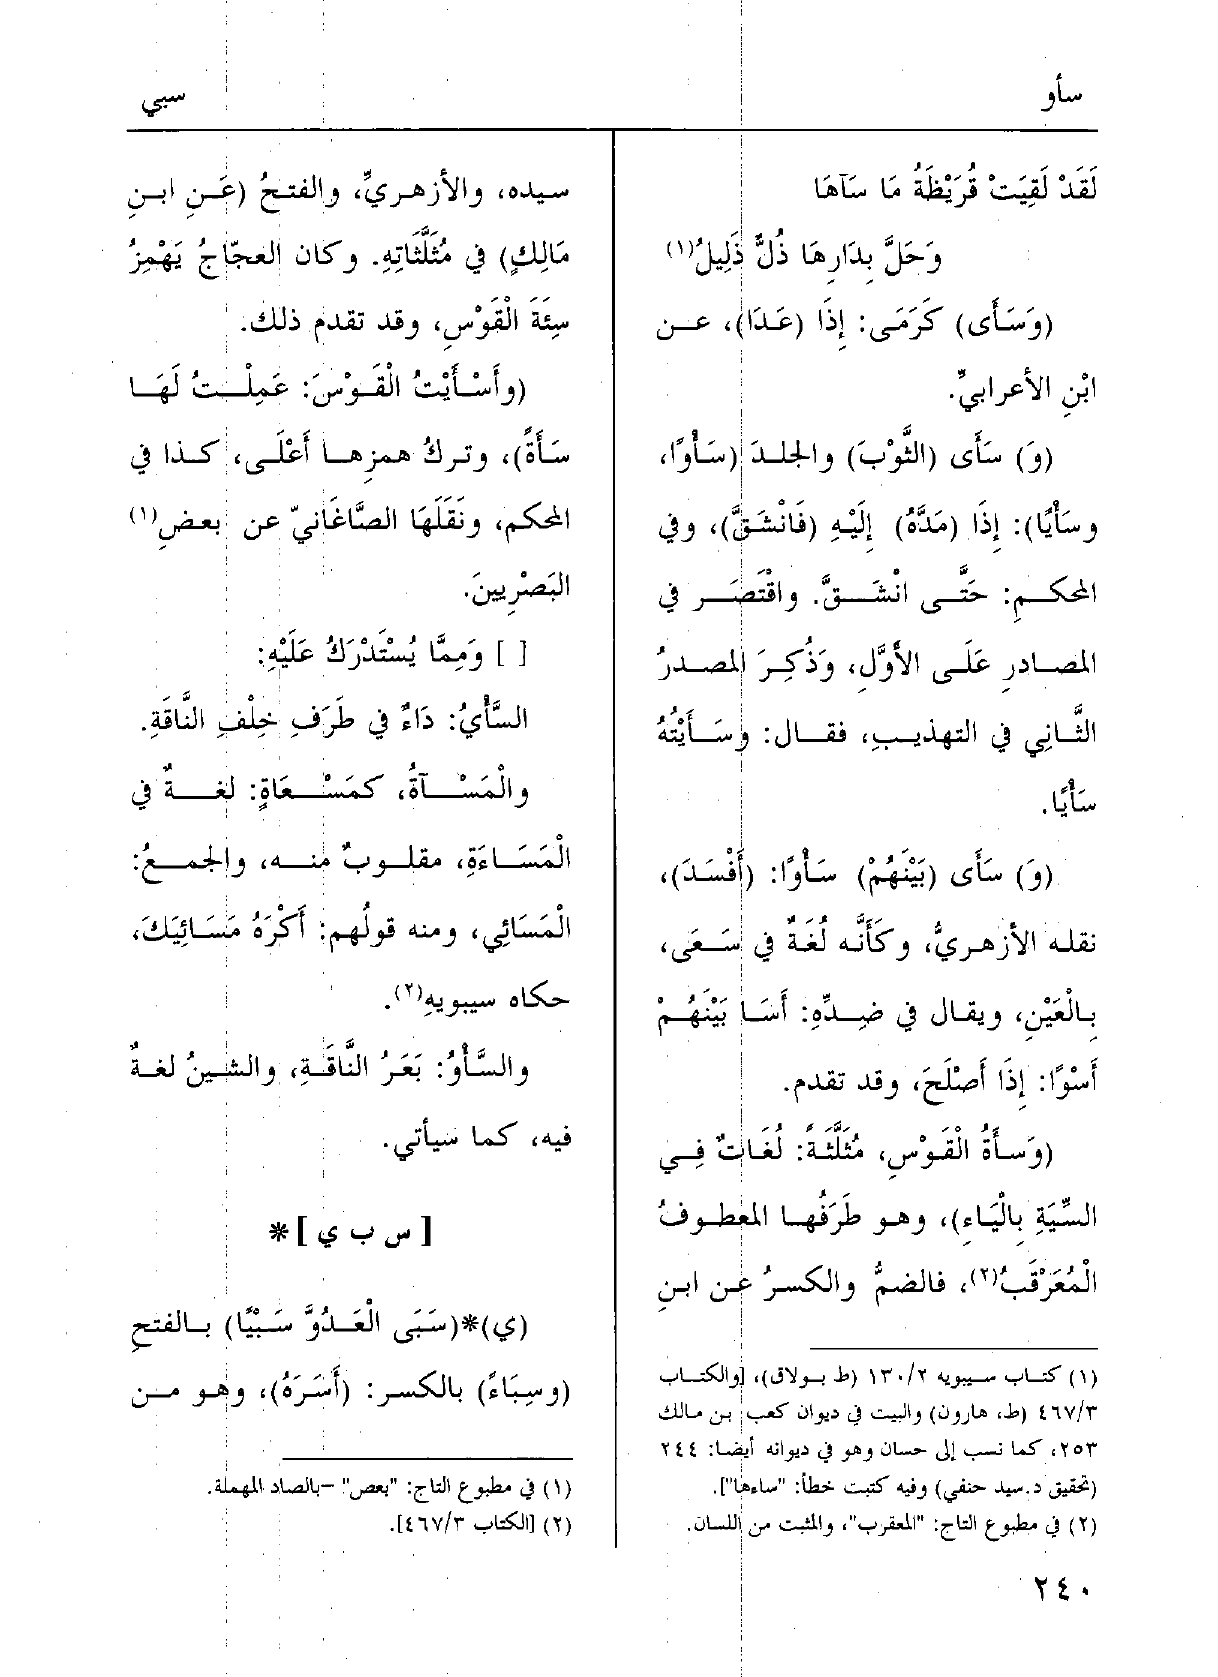 سأو
سبي
لَقَدْ لَقِيَتْ قُرَيْظَةُ مَا سَآهَا
وَحَلَّ بِدَارِهَا ذُلٌّ ذَلِيلُ(١)
(وَسَأَى) كَرَمَى: إِذَا (عَدَا)، عن
ابْنِ الأعرابيِّ.
(وَ) سَأَى (الثَّوْبَ) والجلدَ (سَأْوًا،
وسَأْيًا): إِذَا (مَدَّهُ) إِلَيْهِ (فَانْشَقَّ)، وفي
المحكمِ: حَتَّى انْشَقَّ. واقْتَصَر في
المصادرِ عَلَى الأوَّلِ، وَذُكِرَ المصدرُ
الثَّانِي في التهذيبِ، فقال: وسَأَيْتُهُ
سَأْيًا.
(وَ) سَأَى (بَيْنَهُمْ) سَأْوًا: (أَفْسَدَ)،
نقله الأزهريُّ، وكَأَنَّه لُغَةٌ في سَعَى،
بِالْعَيْنِ، ويقال في ضِدِّهِ: أَسَا بَيْنَهُمْ
أَسْوًا: إِذَا أَصْلَحَ، وقد تقدم.
(وَسأَةُ الْقَوْسِ، مُثَلَّثَةً: لُغَاتٌ فِي
السِّيَةِ بِالْيَاءِ)، وهو طَرَفُها المعطوفُ
الْمُعَرْقَبُ(٢)، فالضمُّ والكسرُ عن ابنِ
(١) كتاب سيبويه ١٣٠/٢ (ط بولاق)، [والكتاب
٤٦٧/٣ (ط، هارون) والبيت في ديوان كعب بن مالك
٢٥٣، كما نسب إلى حسان وهو في ديوانه أيضا: ٢٤٤
(تحقيق د.سيد حنفي) وفيه كتبت خطأ: "ساءها"].
(٢) في مطبوع التاج: "المعقرب"، والمثبت من اللسان.
سيده، والأزهريِّ، والفتحُ (عَنِ ابنِ
مَالِكٍ) في مُثَلَّثَاتِهِ. وكان العجّاجُ يَهْمِزُ
سِئَةَ الْقَوْسِ، وقد تقدم ذلك.
(وأَسْأَيْتُ الْقَوْسَ: عَمِلْتُ لَهَا
سَأَةً)، وتركُ همزها أَعْلَى، كذا في
المحكم، ونَقَلَهَا الصَّاغَانيّ عن بعضِ(١)
البَصْرِيينَ.
[ ] وَمِمَّا يُسْتَدْرَكُ عَلَيْهِ:
السَّأْيُ: دَاءٌ في طَرَفِ خِلْفِ النَّاقَةِ.
والْمَسْآةُ، كمَسْعَاةٍ: لغةٌ في
الْمَسَاءَةِ، مقلوبٌ منه، والجمعُ:
الْمَسَائِي، ومنه قولُهم: أَكْرَهُ مَسَائِيَكَ،
حكاه سيبويهِ(٢).
والسَّأْوُ: بَعَرُ النَّاقَةِ، والشينُ لغةٌ
فيه، كما سيأتي.
[ س ب ي ]*
(ي)*(سَبَى الْعَدُوَّ سَبْيًا) بالفتحِ
(وسِبَاءً) بالكسر: (أَسَرَهُ)، وهو من
(١) في مطبوع التاج: "بعص" –بالصاد المهملة.
(٢) [الكتاب ٤٦٧/٣].
٢٤٠